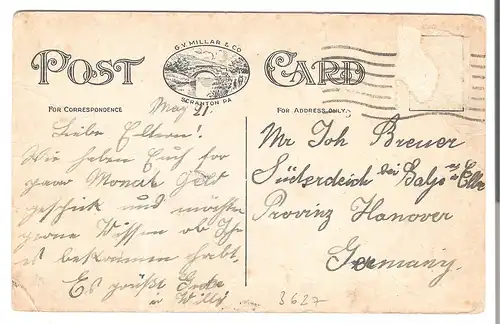 POST CARD
G.V. MILLAR & CO.
SCRANTON PA
FOR CORRESPONDENCE
FOR ADDRESS ONLY.
May 21.
Liebe Eltern!
Wir haben Euch for
paar Monat Geld
geschickt und möchten
gerne Wissen ob Ihr
es bekommen habt.
Es grüßt
u Willi
Mr Joh Breuer
Süderdeich bei Balje a/ Elbe
Provinz Hanover
Germany.
3627